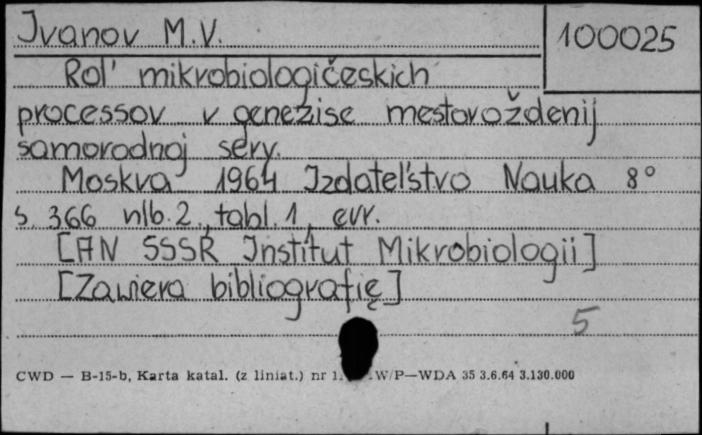 Ivanov M.V.
100025
Rol' mikrobiologičeskich
processov v genezise mestoroždenij
samorodnoj sery.
Moskva 1964 Izdatel'stvo Nauka 8°
s. 366 nlb. 2, tabl. 1
[AN SSSR Institut Mikrobiologii]
[Zawiera bibliografię]
5
CWD — B-15-b, Karta katal. (z liniat.) nr W/P—WDA 35 3.6.64 3.130.000